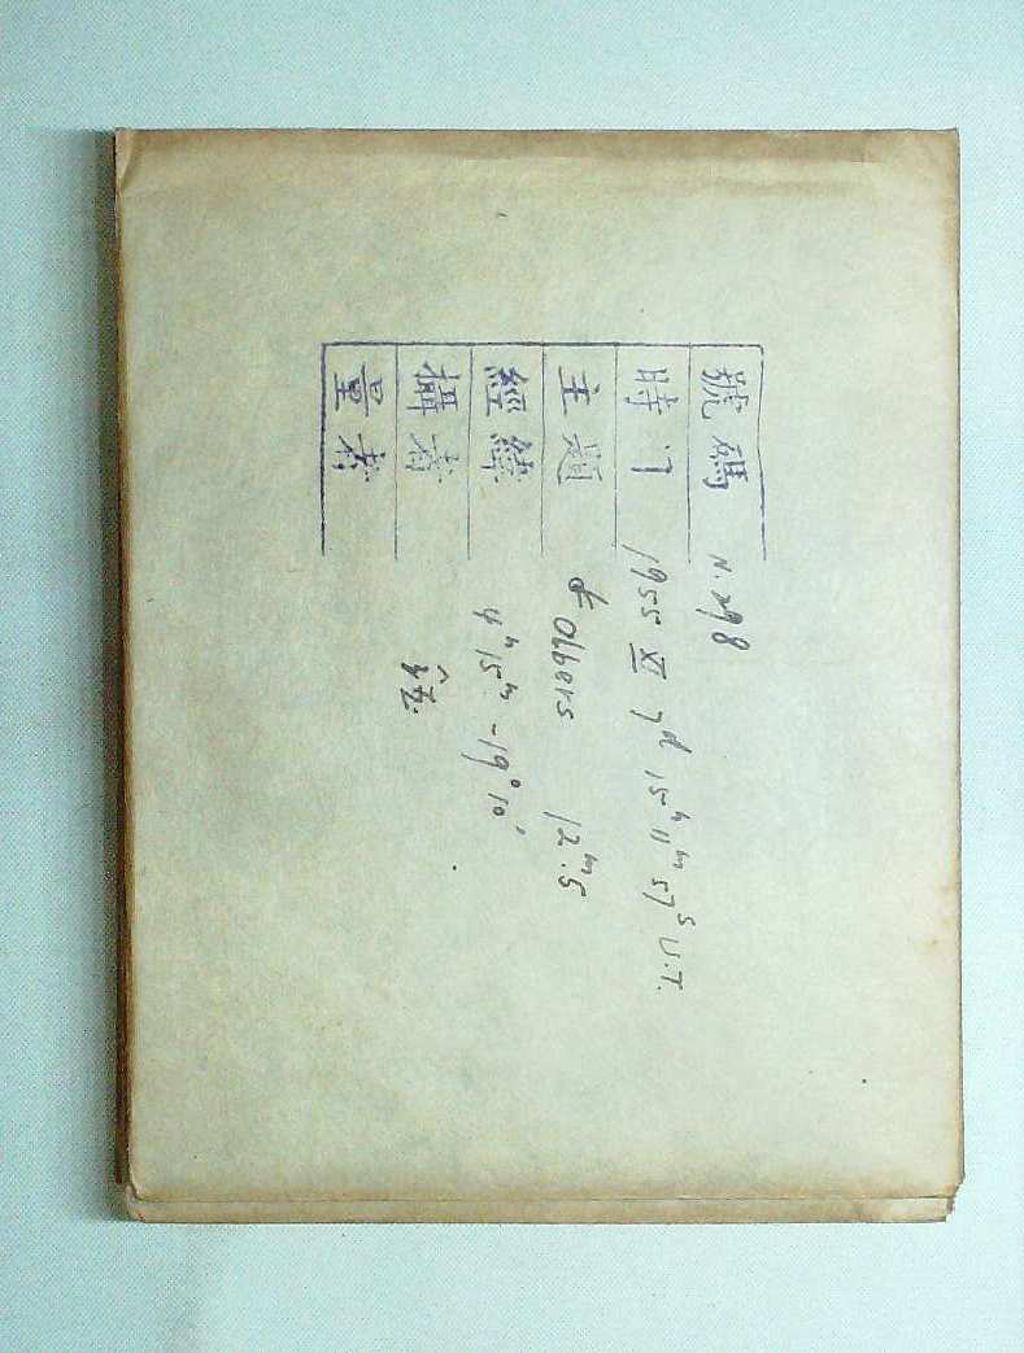 號碼 N.298
時间 1955 XI 7ᵈ 15ʰ 11ᵐ 57ˢ U.T.
主題 Olbers 12ᵐ.5
經緯 4ʰ15ᵐ -19°10′
攝者
量者